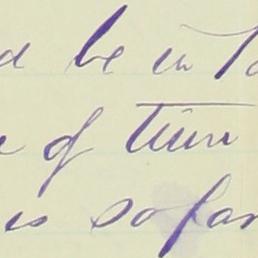 d be in
of time
is so far